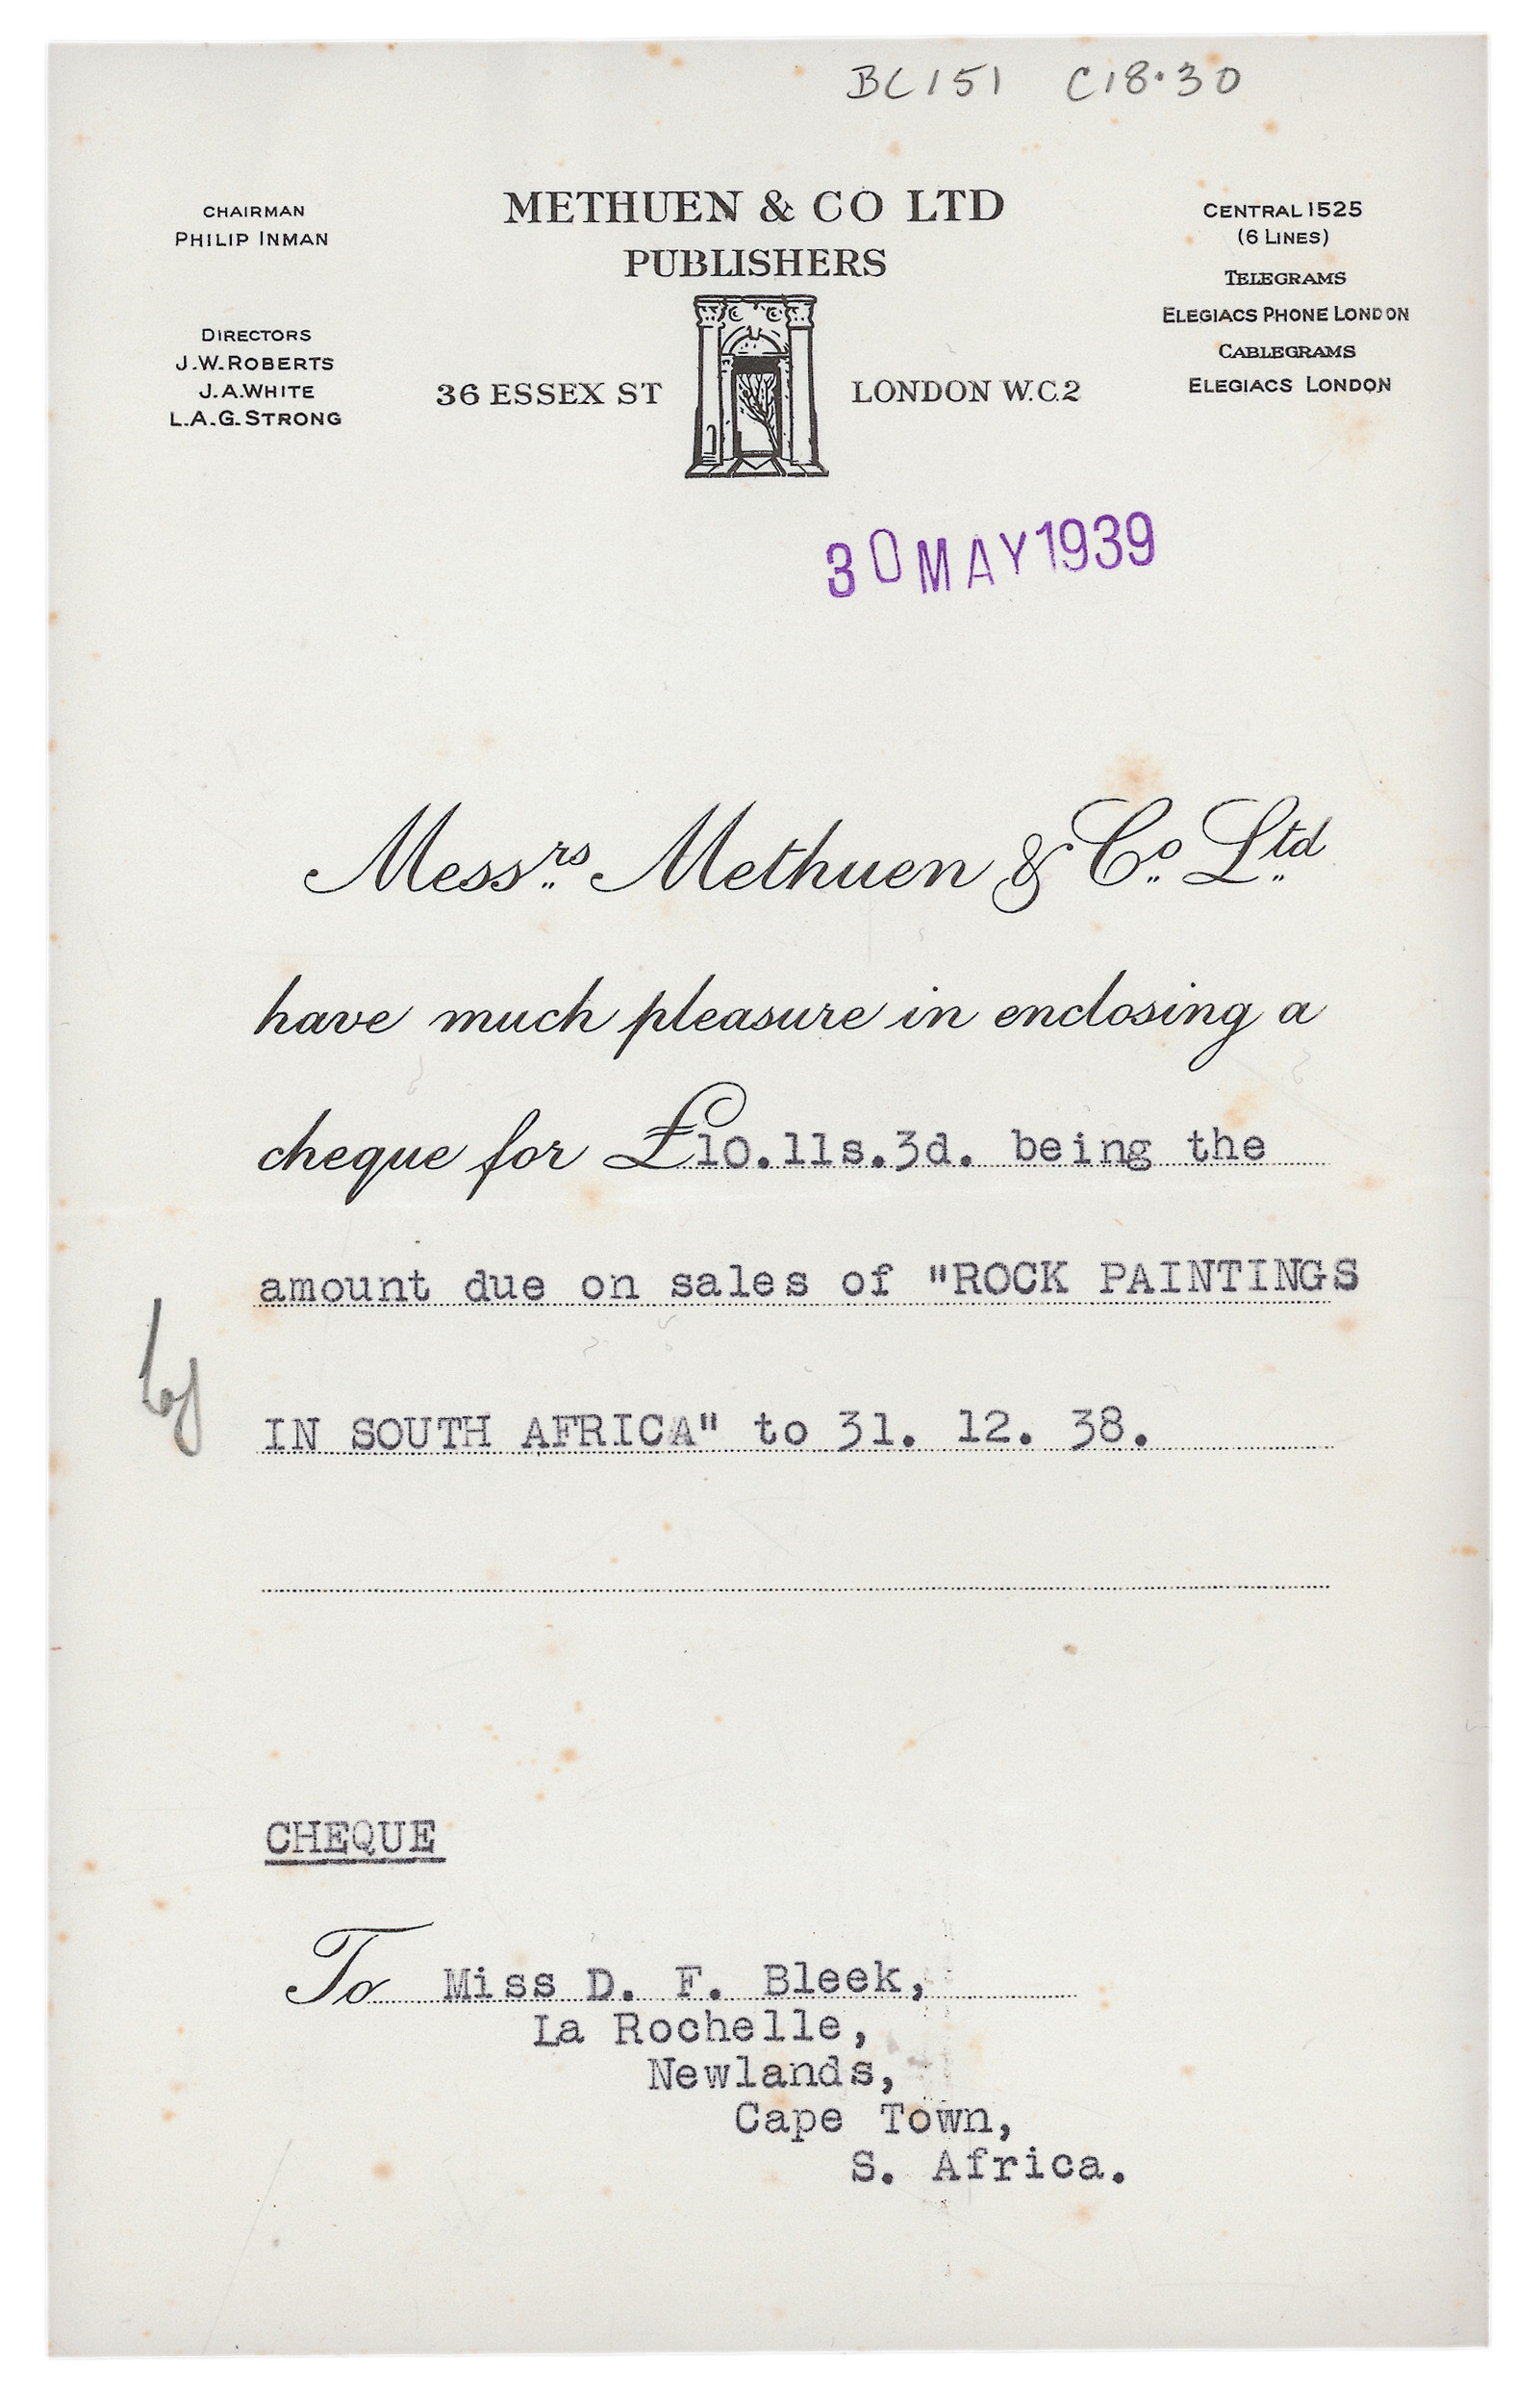 BC151 C18.30
METHUEN & CO LTD
PUBLISHERS
36 ESSEX ST LONDON W.C.2
CHAIRMAN
PHILIP INMAN
DIRECTORS
J.W.ROBERTS
J.A.WHITE
L.A.G.STRONG
CENTRAL 1525
(6 LINES)
TELEGRAMS
ELEGIACS PHONE LONDON
CABLEGRAMS
ELEGIACS LONDON
30 MAY 1939
Messrs Methuen & Co Ltd
have much pleasure in enclosing a
cheque for £10.11s.3d. being the
amount due on sales of "ROCK PAINTINGS
IN SOUTH AFRICA" to 31. 12. 38.
CHEQUE
To Miss D. F. Bleek,
La Rochelle,
Newlands,
Cape Town,
S. Africa.